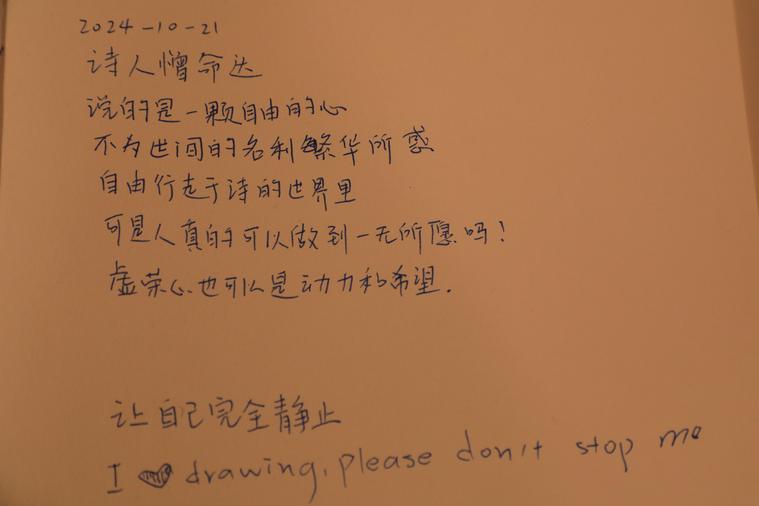 2024-10-21
诗人憎命达
说的是一颗自由的心
不为世间的名利繁华所惑
自由行走于诗的世界里
可是人真的可以做到一无所愿吗!
虚荣心也可以是动力和希望.
让自己完全静止
I ♥ drawing, please don't stop me